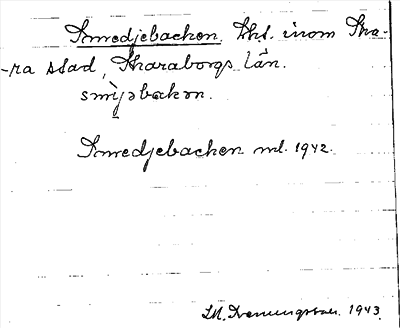 Smedjebacken, Lht. inom Ska-
-ra stad, Skaraborgs län.
smijəbakən.
Smedjebacken ml. 1942.
1943.